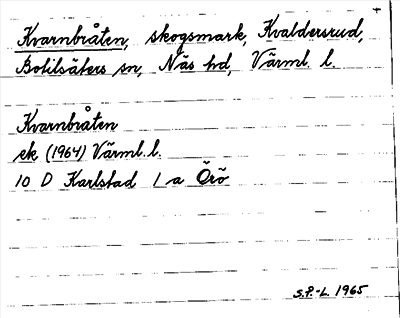 Kvarnbråten, skogsmark, Kvaldersrud,
Botilsäters sn, Näs hd, Värml. l.
Kvarnbråten
ek (1964) Värml. l.
10 D Karlstad 1 a Örö
S.P.-L. 1965